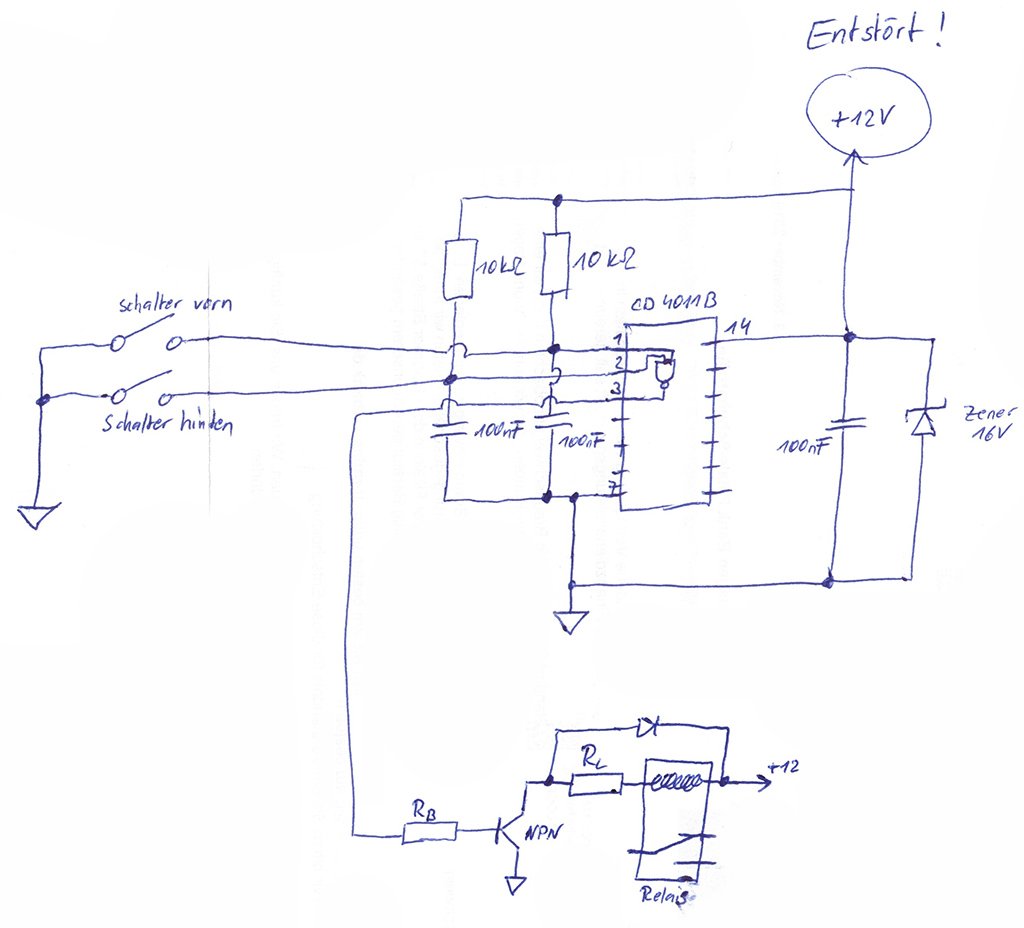 Entstört!
+12V
10kΩ
10kΩ
CD 4011B
Schalter vorn
1
14
2
3
Schalter hinden
100nF
100nF
100nF
Zener
16V
7
RL
+12
RB
NPN
Relais